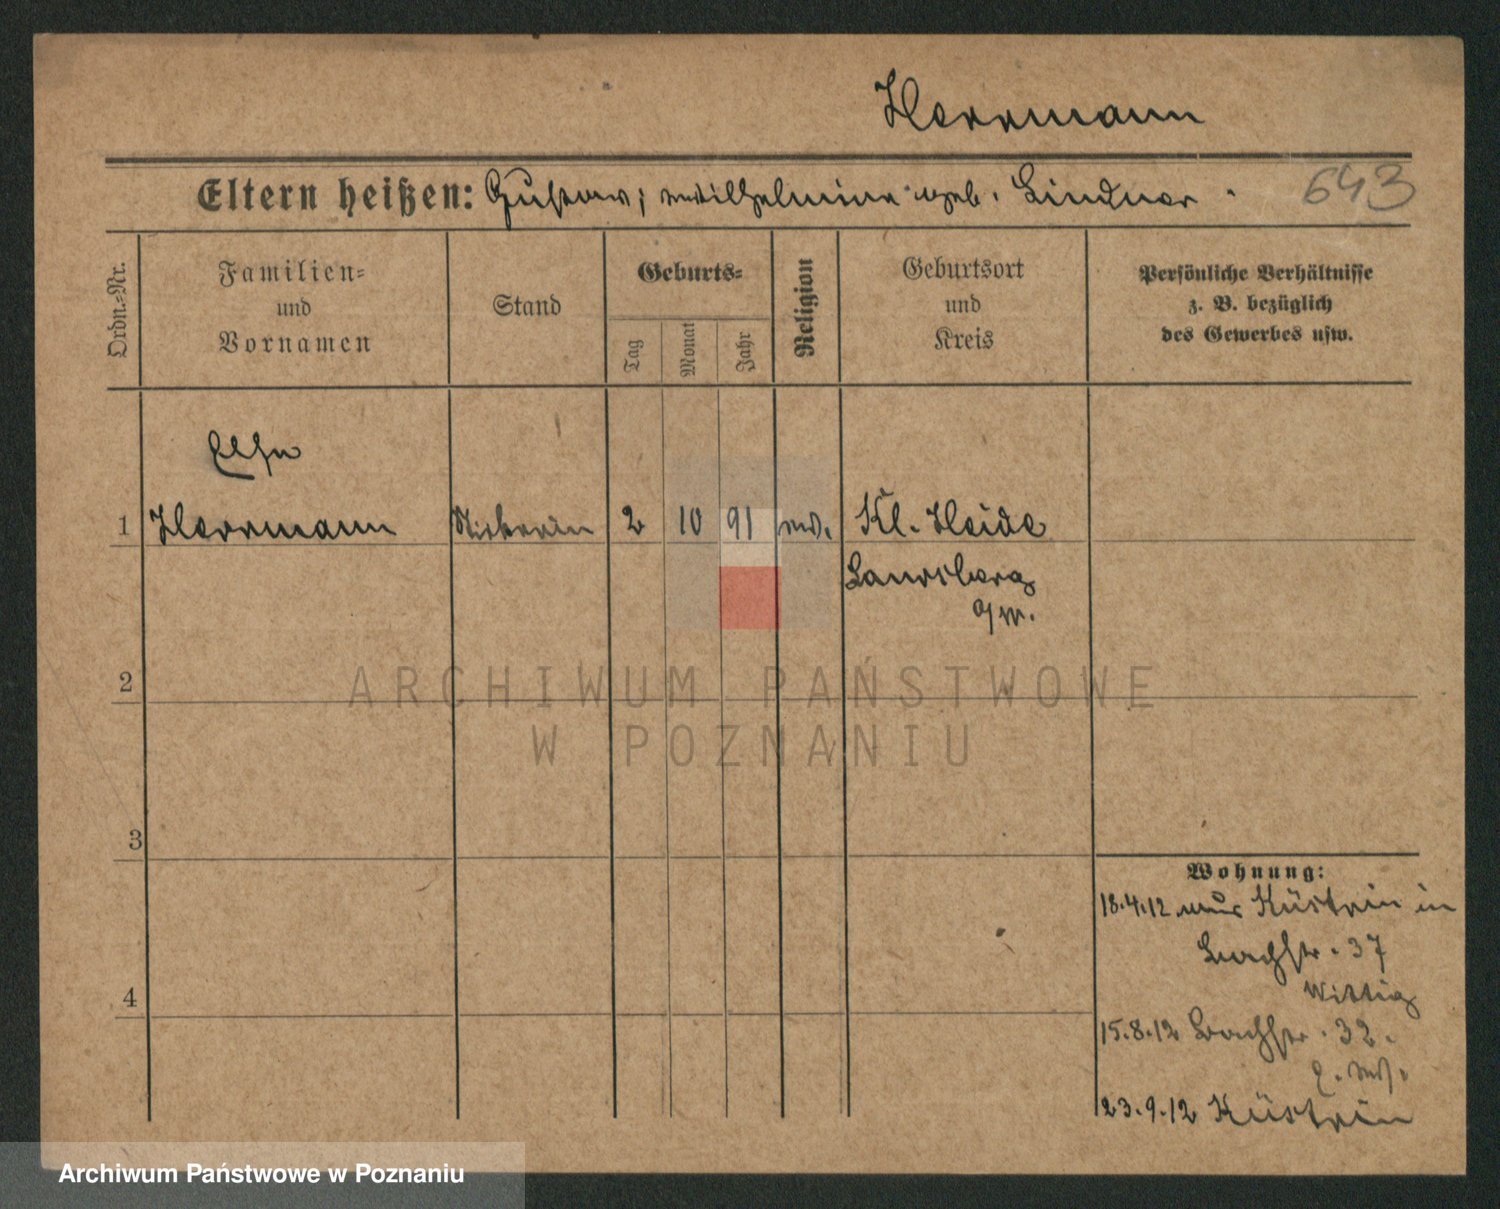 Herrmann
Eltern heißen: Gustav; Wilhelmine geb. Lindner.
643
Ordn.-Nr.
Familien-
und
Vornamen
Stand
Geburts-
Tag
Monat
Jahr
Religion
Geburtsort
und
Kreis
Persönliche Verhältnisse
z. B. bezüglich
des Gewerbes usw.
Else
1 Herrmann 2 10 91 ev. Kl. Heide
Landsberg
a/W.
2
ARCHIWUM PAŃSTWOWE
W POZNANIU
3
Wohnung:
18.4.12 aus Küstrin in
Bachstr. 37
Wittig
4
15.8.12 Bachstr. 32.
23.9.12 Küstrin
Archiwum Państwowe w Poznaniu